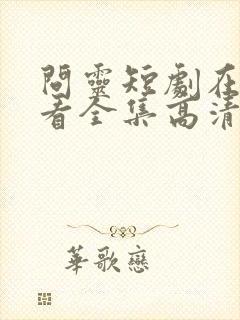 問靈短劇在
看全集高清
華歌戀